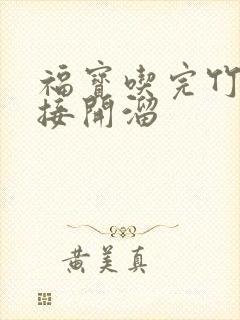 福寶喫完竹
接開溜
黃美真